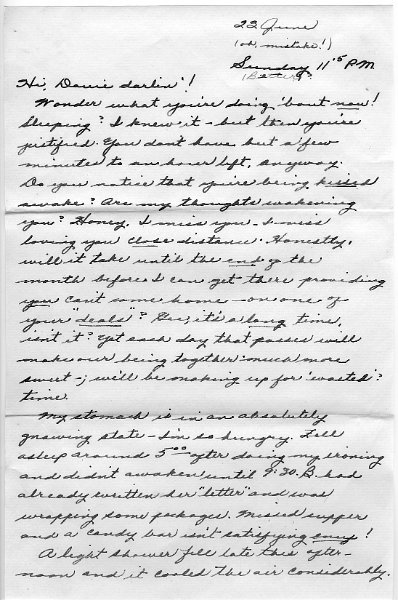 22 June
(oh, mistake!)
Sunday 11¹⁵ PM
Hi, Davie darlin'!
Wonder what you're doing 'bout now!
Sleeping? I knew it - but then you're
justified. You don't have but a few
minutes to an hour left, anyway.
Do you notice that you're being kissed
awake? Are my thoughts wakening
you? Honey, I miss you - I miss
loving you close distance. Honestly,
will it take until the end of the
month before I can get there providing
you can't come home - on one of
your "deals"? Gee, it's a long time,
isn't it? Yet each day that passes will
make our being together much more
sweet -; we'll be making up for 'wasted'?
time.
My stomach is in an absolutely
gnawing state - I'm so hungry. Fell
asleep around 5⁰⁰ after doing my ironing
and didn't awaken until 9:30. B. had
already written her "letter" and was
wrapping some packages. Missed supper
and a candy bar isn't satisfying !
A light shower fell late this after-
noon and it cooled the air considerably.